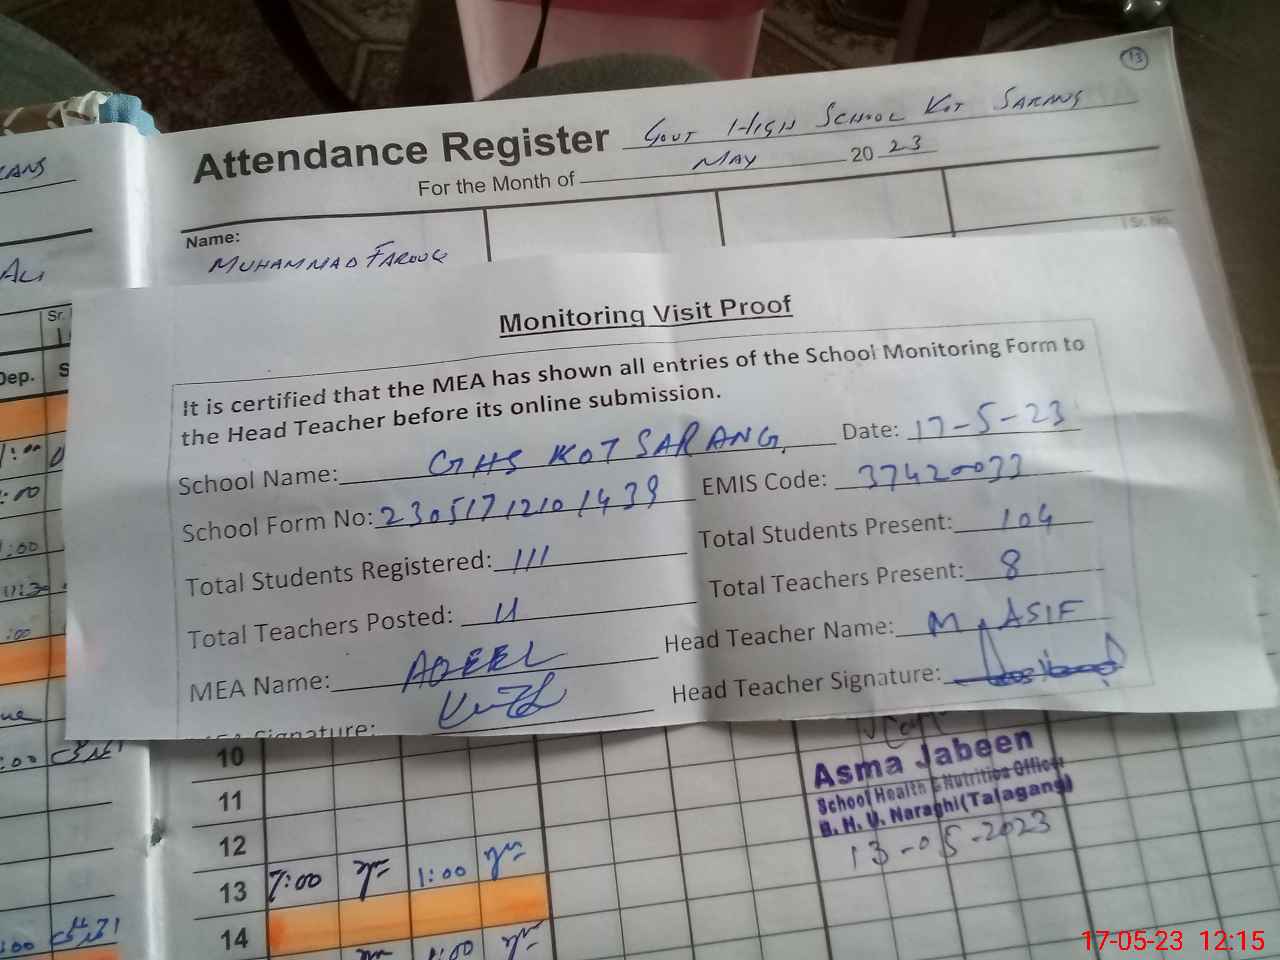 13
Attendance Register GOVT HIGH SCHOOL KOT SARANG
For the Month of MAY 20 23
Sr. No.
Name:
MUHAMMAD FAROUQ
ALI
Sr.
Dep.
Monitoring Visit Proof
It is certified that the MEA has shown all entries of the School Monitoring Form to
the Head Teacher before its online submission.
School Name: GHS KOT SARANG. Date: 17-5-23
School Form No: 23051712101439 EMIS Code: 37420033
Total Students Registered: 111 Total Students Present: 104
Total Teachers Posted: 11 Total Teachers Present: 8
MEA Name: AQEEL Head Teacher Name: M. ASIF
Signature: Head Teacher Signature:
10
11
12
13 7:00 1:00
14 1:00
Asma Jabeen
School Health & Nutrition Officer
B.H.U. Naraghi (Talagang)
13-05-2023
17-05-23 12:15